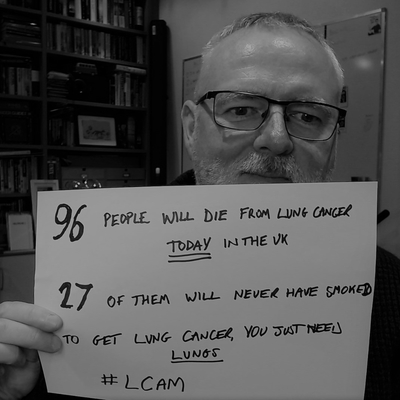 96 PEOPLE WILL DIE FROM LUNG CANCER
TODAY IN THE UK
27 OF THEM WILL NEVER HAVE SMOKED
TO GET LUNG CANCER, YOU JUST NEED
LUNGS
#LCAM